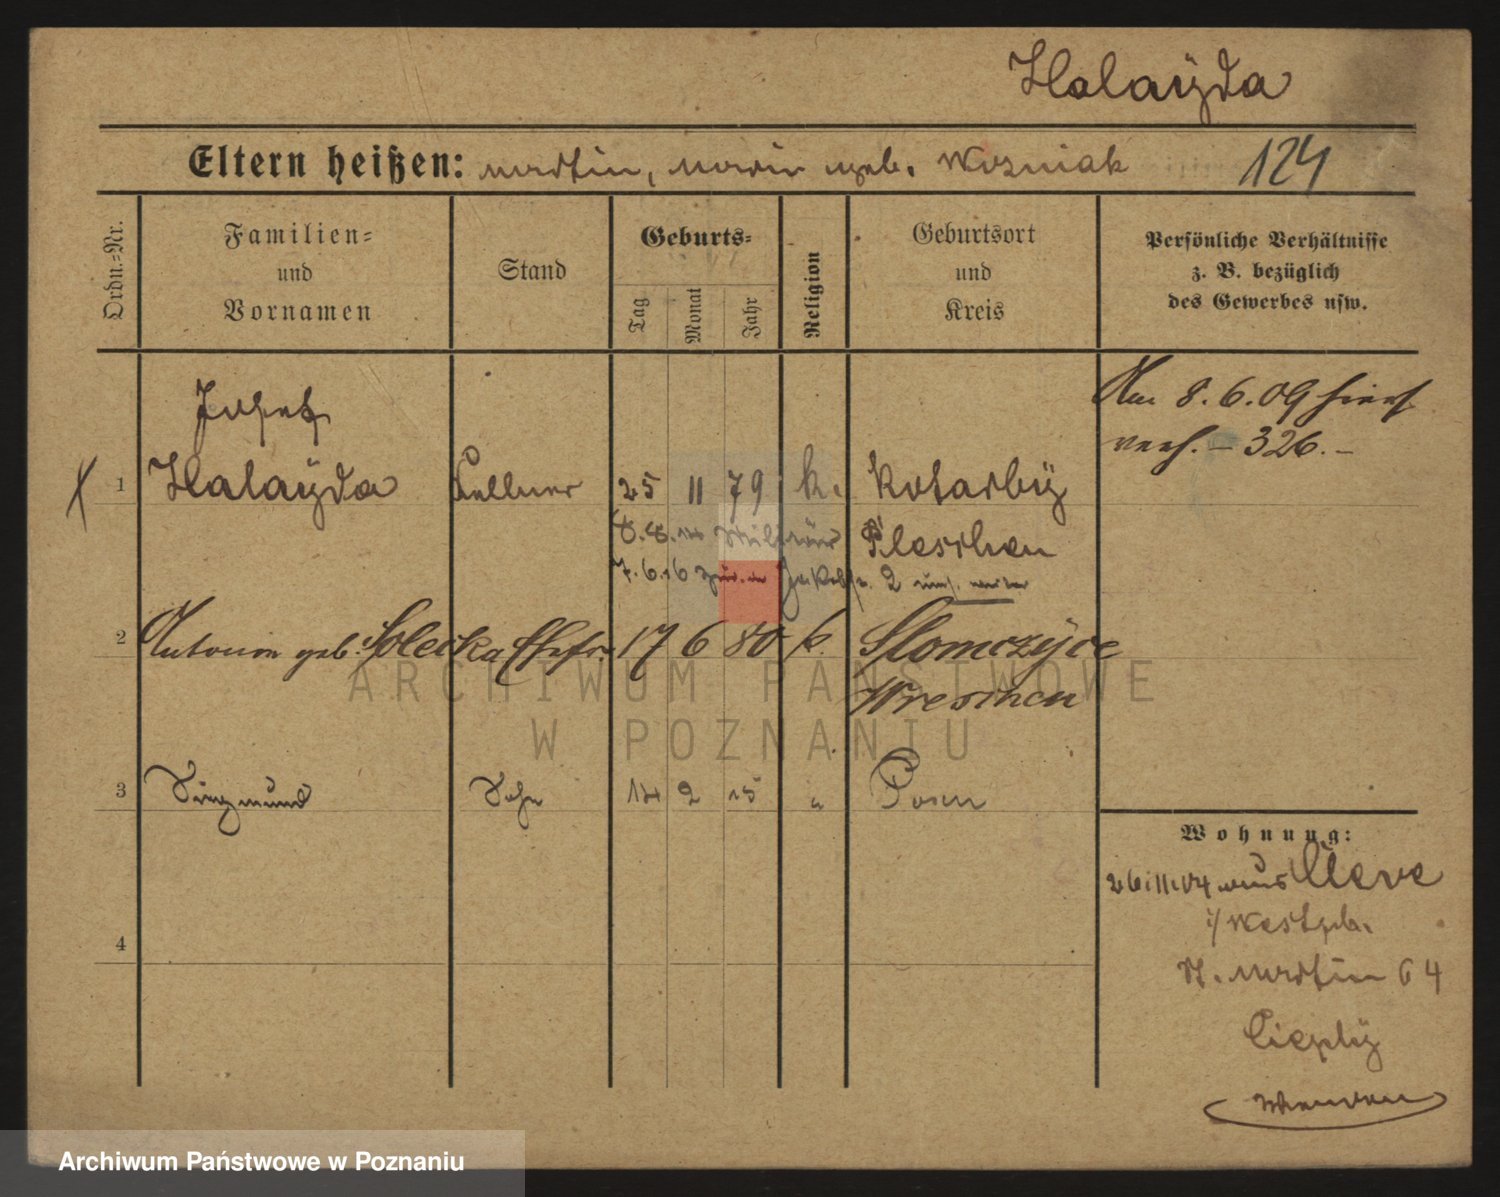 Halaÿda
Eltern heißen: Martin, Maria geb. Wozniak 124
Ordn.-Nr.
Familien- und Vornamen
Stand
Geburts-
Tag Monat Jahr
Religion
Geburtsort und Kreis
Persönliche Verhältnisse z. B. bezüglich des Gewerbes usw.
Am 8. 6. 09 hier
verh. – 326. –
Josef
1 Halaÿda Kellner 25 11 79 k. Kotarbÿ
Pleschen
8. 8. 14 Militär
7. 6. 16 zur. 2
2 Antonie geb. Solecka Ehefr. 17 6 80 k. Slomczÿce
Wreschen
3 Siegmund Sohn 14 2 15 " Posen
4
Wohnung:
26.11.04 aus Cleve
i/ Westph.
St. Martin 64
Cieplÿ
ARCHIWUM PAŃSTWOWE
W POZNANIU
Archiwum Państwowe w Poznaniu